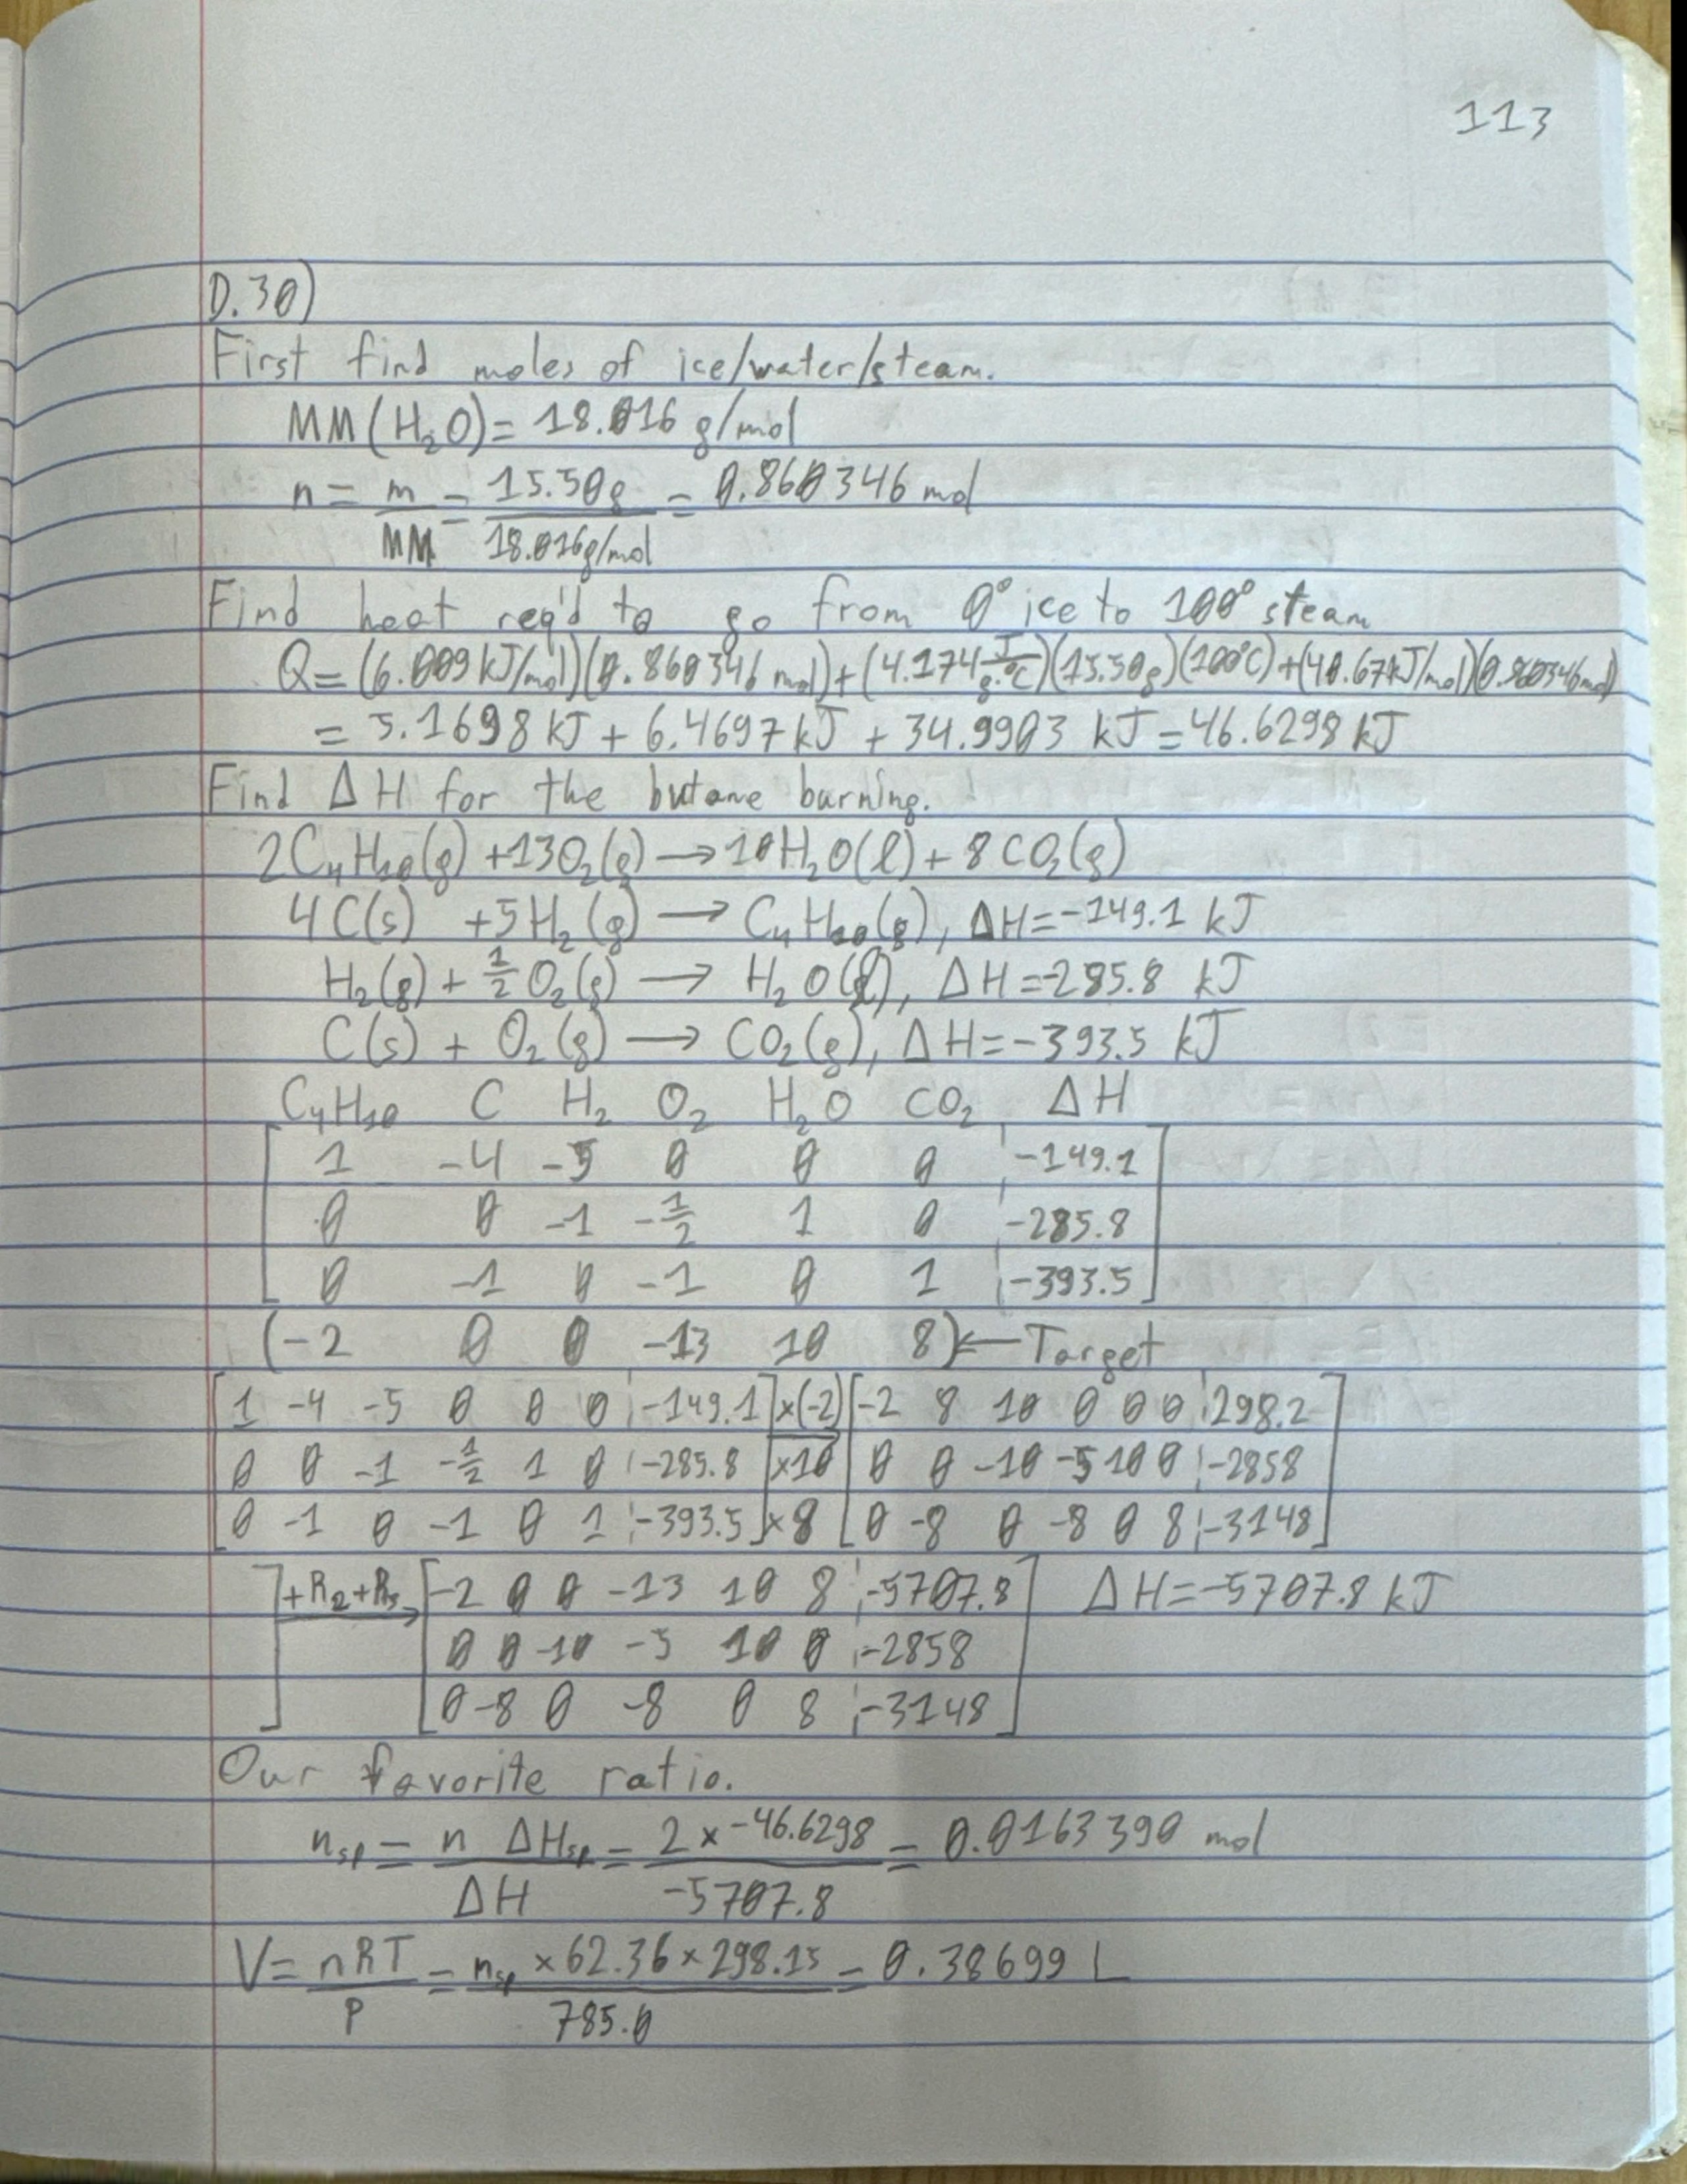 113
D.30)
First find moles of ice/water/steam.
MM(H₂O)= 18.016 g/mol
n = m/MM = 15.50g/18.016g/mol = 0.860346 mol
Find heat req'd to go from 0° ice to 100° steam
Q= (6.009 kJ/mol)(0.860346 mol)+(4.174 J/g·°C)(15.50g)(100°C)+(40.67kJ/mol)(0.860346mol)
= 5.1698 kJ + 6.4697 kJ + 34.9903 kJ = 46.6298 kJ
Find ΔH for the butane burning.
2C₄H₁₀(g) +13O₂(g) → 10H₂O(l) + 8CO₂(g)
4C(s) +5H₂(g) → C₄H₁₀(g), ΔH=-149.1 kJ
H₂(g) + 1/2 O₂(g) → H₂O(l), ΔH=-285.8 kJ
C(s) + O₂(g) → CO₂(g), ΔH=-393.5 kJ
C₄H₁₀ C H₂ O₂ H₂O CO₂ ΔH
[1 -4 -5 0 0 0 ¦ -149.1]
0 0 -1 -1/2 1 0 ¦ -285.8
0 -1 0 -1 0 1 ¦ -393.5]
(-2 0 0 -13 10 8) ← Target
[1 -4 -5 0 0 0 ¦ -149.1] ×(-2) [-2 8 10 0 0 0 ¦ 298.2]
0 0 -1 -1/2 1 0 ¦ -285.8 ×10 0 0 -10 -5 10 0 ¦ -2858
0 -1 0 -1 0 1 ¦ -393.5] ×8 [0 -8 0 -8 0 8 ¦ -3148]
] +R₂+R₃ → [-2 0 0 -13 10 8 ¦ -5707.8] ΔH=-5707.8 kJ
0 0 -10 -5 10 0 ¦ -2858
0 -8 0 -8 0 8 ¦ -3148]
Our favorite ratio.
nsp = n ΔHsp/ΔH = 2 × -46.6298/-5707.8 = 0.0163390 mol
V= nRT/P = nsp ×62.36×298.15/785.0 = 0.38699 L